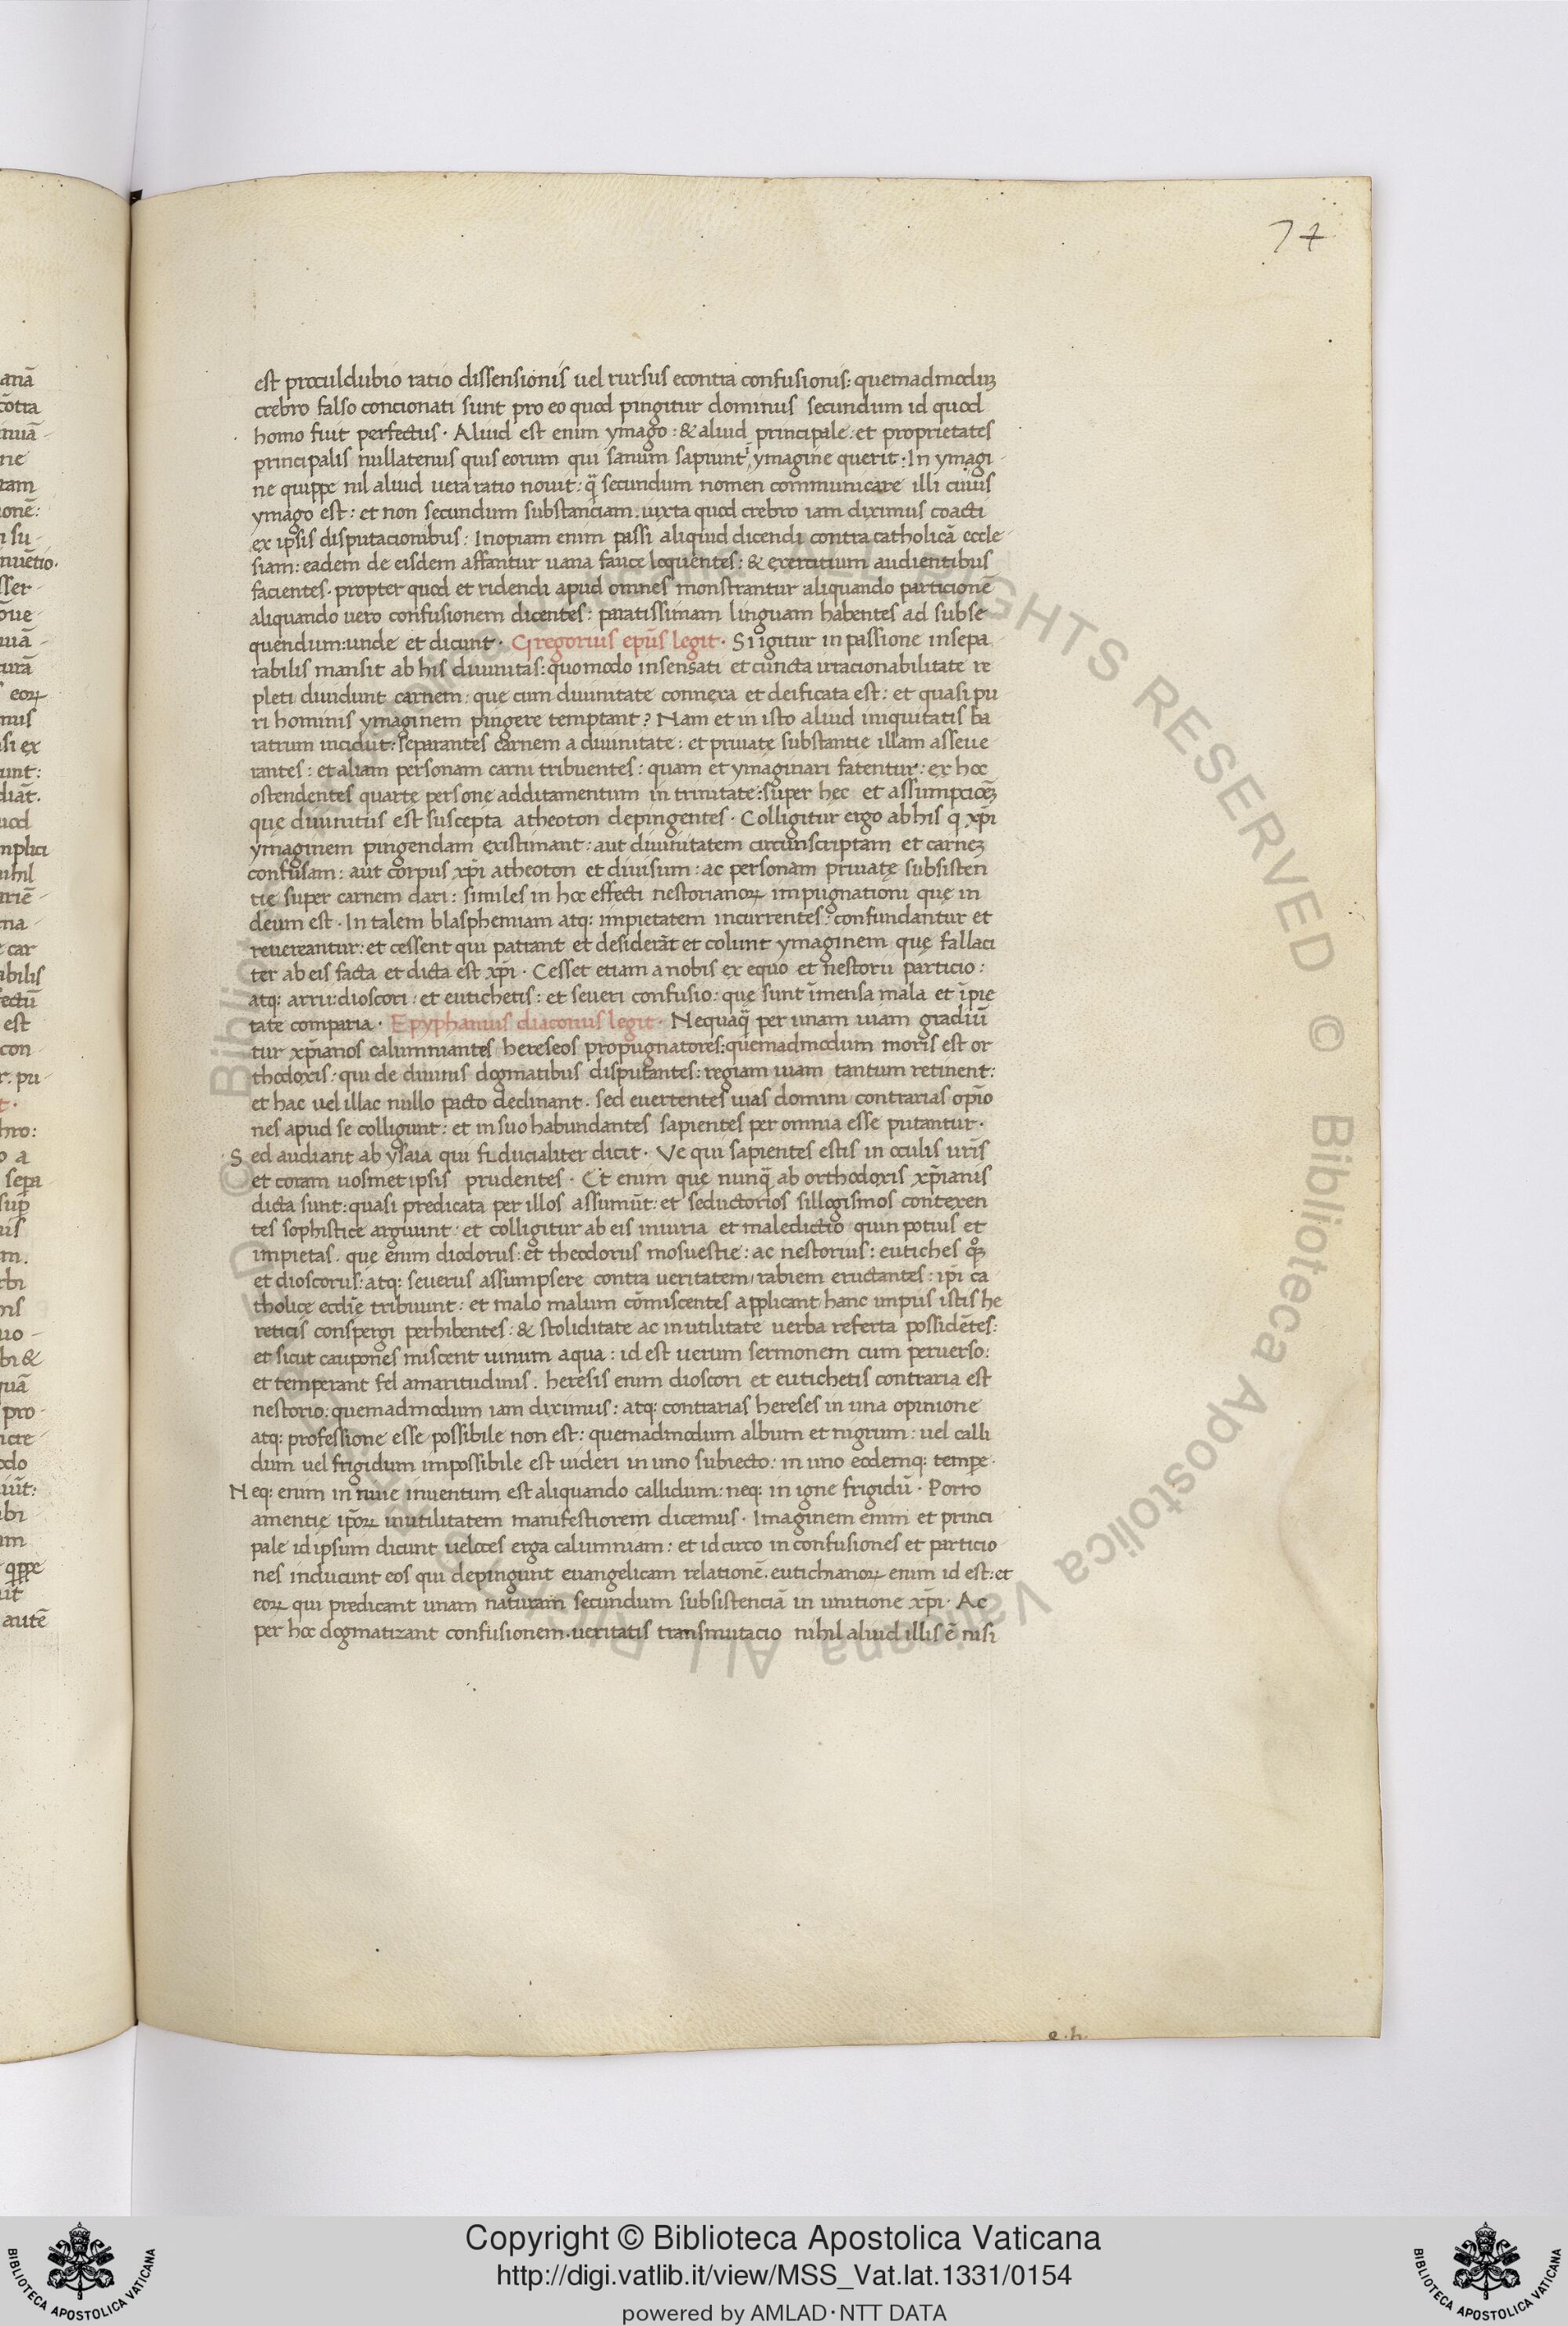 74
est proculdubio ratio dissensionis uel rursus econtra confusionis: quemadmoduʒ
crebro falso concionati sunt pro eo quod pingitur dominus secundum id quod
homo fuit perfectus. Aliud est enim ymago: & aliud principale: et proprietates
principalis nullatenus quis eorum qui sanum sapiunt ī ymagine querit: In ymagi
ne quippe nil aliud uera ratio nouit: q̄ secundum nomen communicare illi cuius
ymago est: et non secundum substanciam. iuxta quod crebro iam diximus coacti
ex ipsis disputacionibus: Inopiam enim passi aliquid dicendi contra catholicā eccle-
siam: eadem de eisdem affantur uana fauce loquentes: & exercitium audientibus
facientes. propter quod et ridendi apud omnes monstrantur aliquando particionē
aliquando uero confusionem dicentes: paratissimam linguam habentes ad subse-
quendum: unde et dicunt. Gregorius ep̄s legit. Si igitur in passione insepa
rabilis mansit ab his diuinitas: quomodo insensati et cuncta irracionabilitate re
pleti diuidunt carnem: que cum diuinitate connexa et deificata est: et quasi pu
ri hominis ymaginem pingere temptant? Nam et in isto aliud iniquitatis ba
ratrum incidūt: separantes carnem a diuinitate: et priuatę substantie illam asseue
rantes: et aliam personam carni tribuentes: quam et ymaginari fatentur: ex hoc
ostendentes quarte persone additamentum in trinitate: super hec et assumpcioēʒ
que diuinitus est suscepta atheoton depingentes. Colligitur ergo ab his q xp̄i
ymaginem pingendam existimant: aut diuinitatem circunscriptam et carneʒ
confusam: aut corpus xp̄i atheoton et diuisum: ac personam priuatę subsisten
tie super carnem dari: similes in hoc effecti nestorianoꝝ impugnationi quę in
deum est. In talem blasphemiam atq: impietatem incurrentes: confundantur et
reuereantur: et cessent qui patrant et desiderāt et colunt ymaginem quę fallaci
ter ab eis facta et dicta est xp̄i. Cesset etiam a nobis ex equo et nestorii particio:
atq: arrii: dioscori: et eutichetis: et seueri confusio: quę sunt īmensa mala et īpie
tate comparia. Epyphanius diaconus legit. Nequaq̄ per unam uiam gradiū
tur xp̄ianos calumniantes hereseos propugnatores: quemadmodum moris est or
thodoxis: qui de diuinis dogmatibus disputantes: regiam uiam tantum retinent:
et hac uel illac nullo pacto declinant. sed euertentes uias domini contrarias opīo
nes apud se colligunt: et in suo habundantes sapientes per omnia esse putantur.
Sed audiant ab ysaia qui fiducialiter dicit. Ve qui sapientes estis in oculis ur̄is
et coram uosmet ipsis prudentes. Et enim quę nunq̄ ab orthodoxis xp̄ianis
dicta sunt: quasi predicata per illos assumūt: et seductorios sillogismos contexen
tes sophistice arguunt: et colligitur ab eis iniuria et maledictio quin potius et
impietas. que enim diodorus: et theodorus mosuestie: ac nestorius: eutiches
et dioscorus: atq: seuerus assumpsere contra ueritatem, rabiem eructantes: ip̄i ca
tholicę eccl̄ie tribuunt: et malo malum cōmiscentes applicant hanc impiis istis he
reticis conspergi perhibentes: & stoliditate ac inutilitate uerba referta possidētes:
et sicut caupones miscent uinum aqua: id est uerum sermonem cum peruerso:
et temperant fel amaritudinis. heresis enim dioscori et eutichetis contraria est
nestorio: quemadmodum iam diximus: atq: contrarias hereses in una opinione
atq: professione esse possibile non est: quemadmodum album et nigrum: uel calli
dum uel frigidum impossibile est uideri in uno subiecto: in uno eodemq: tempe.
Neq: enim in niuie inuentum est aliquando callidum: neq: in igne frigidū. Porro
amentię ip̄oꝝ inutilitatem manifestiorem dicemus. Imaginem enim et princi
pale id ipsum dicunt ueloces erga calumniam: et idcirco in confusiones et particio
nes inducunt eos qui depingunt euangelicam relationē. eutichianoꝝ enim id est: et
eoꝝ qui predicant unam naturam secundum subsistenciā in unitione xp̄i. Ac
per hoc dogmatizant confusionem. ueritatis transmutacio nihil aliud illis ē nisi
e.h.
Copyright © Biblioteca Apostolica Vaticana
http://digi.vatlib.it/view/MSS_Vat.lat.1331/0154
powered by AMLAD·NTT DATA
BIBLIOTECA APOSTOLICA VATICANA
BIBLIOTECA APOSTOLICA VATICANA